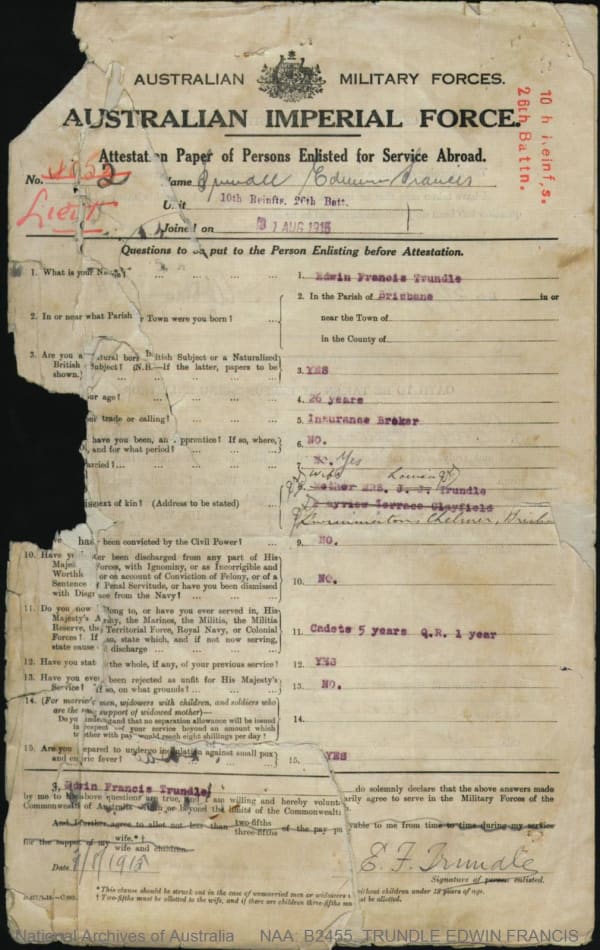 AUSTRALIAN MILITARY FORCES.
AUSTRALIAN IMPERIAL FORCE.
10th Reinf,s.
26th Battn.
Attestat n Paper of Persons Enlisted for Service Abroad.
No. 2 Name Trundle Edwin Francis
Lieut
Unit 10th Reinfts. 26th Batt.
Joined on 31 AUG 1915
Questions to be put to the Person Enlisting before Attestation.
1. What is your Name? ... ... ... ... 1. Edwin Francis Trundle
2. In or near what Parish or Town were you born? ... ... 2. In the Parish of Brisbane in or
near the Town of
in the County of
3. Are you a natural born British Subject or a Naturalized
British Subject? (N.B.—If the latter, papers to be
shown.) 3. YES
our age? ... ... ... ... 4. 26 years
er trade or calling? ... ... ... 5. Insurance Broker
have you been, an pprentice? If so, where,
, and for what period? ... ... ... 6. No.
arried? ... ... ... ... 7. No. Yes
wife
next of kin? (Address to be stated) ... 8. Mother MRS. J. J. Trundle
ayview Terrace Clayfield
Chelmer, Brisb
been convicted by the Civil Power? ... ... 9. NO.
10. Have y ver been discharged from any part of His
Maje Forces, with Ignominy, or as Incorrigible and
Worthl or on account of Conviction of Felony, or of a
Sentence f Penal Servitude, or have you been dismissed
with Disgrace from the Navy? ... ... 10. NO.
11. Do you now long to, or have you ever served in, His
Majesty's A y, the Marines, the Militia, the Militia
Reserve, the Territorial Force, Royal Navy, or Colonial
Forces? If so, state which, and if not now serving,
state cause discharge ... ... ... 11. Cadets 5 years Q.R. 1 year
12. Have you stat the whole, if any, of your previous service? 12. YES
13. Have you ever been rejected as unfit for His Majesty's
Service? If so, on what grounds? ... ... 13. NO.
14. (For married men, widowers with children, and soldiers who
are the sole support of widowed mother)—
Do you understand that no separation allowance will be issued
in respect of your service beyond an amount which
together with pay would reach eight shillings per day? 14.
15. Are you prepared to undergo inoculation against small pox
and enteric fever? 15. YES
I, Edwin Francis Trundle do solemnly declare that the above answers made
by me to the above questions are true, and I am willing and hereby volunt arily agree to serve in the Military Forces of the
Commonwealth of Australia within or beyond the limits of the Commonwealt
And I further agree to allot not less than two-fifths
three-fifths of the pay p yable to me from time to time during my service
for the support of my wife.* †
wife and children.
Date /8/1915 E. F. Trundle
Signature of person enlisted.
* This clause should be struck out in the case of unmarried men or widowers without children under 18 years of age.
† Two-fifths must be allotted to the wife, and if there are children three-fifths must be allotted.
National Archives of Australia NAA: B2455, TRUNDLE EDWIN FRANCIS